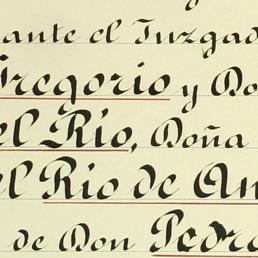 ante el Juzgad
Gregorio y Do
el Río, Doña
el Río de An
de Don Pedro